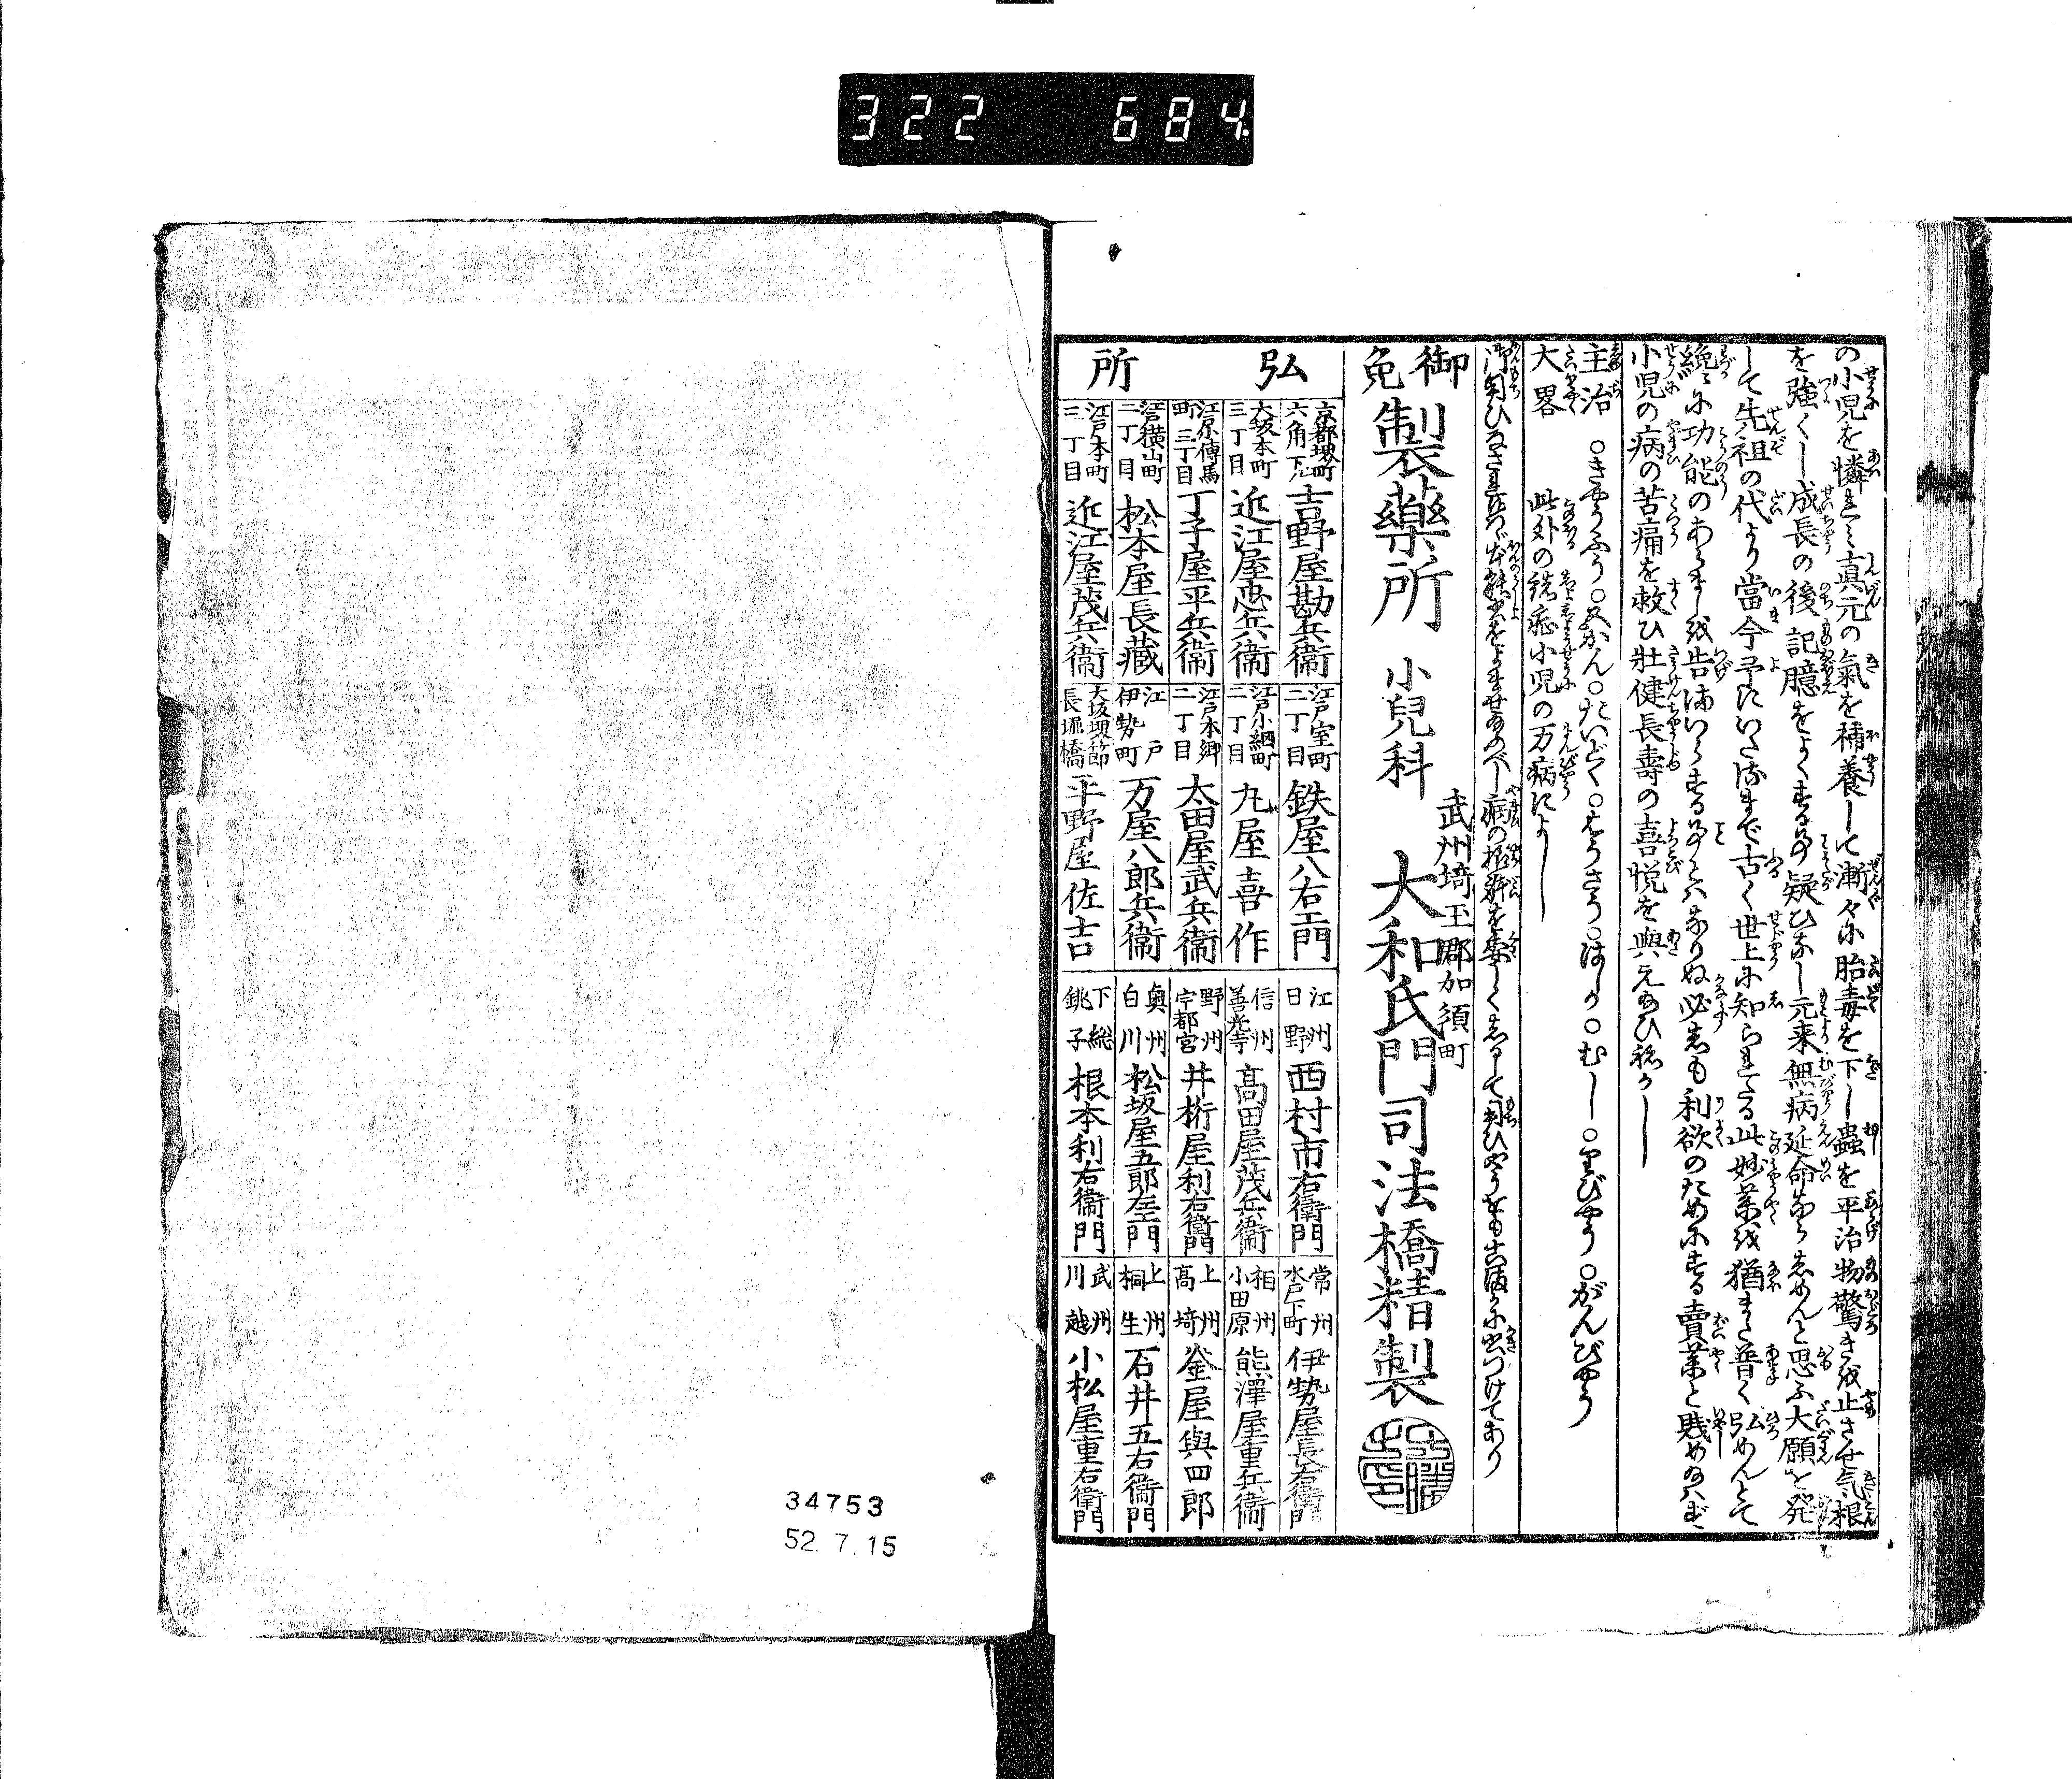 322 684
の小児を憐れミ真元の氣を補養して漸々に胎毒を下し蟲を平治物驚きを止させ気根
を強くし成長の後記臆をよくする事疑ひなし元来無病延命ならしめんと思ふ大願を発
して先祖の代より當今予にいたるまで古く世上に知られたる此妙薬を猶また普く弘めんとて
功能のあらましを告
必しも利欲のためにする賣薬と賤め給ハず
小児の病の苦痛を救ひ壮健長壽の喜悦を與え給ひねかし
主治
大畧
○きやうふう○五かん○たいどく○はうさう○はしか○むし○りびやう○がんびやう
此外の諸症小児の万病によし
病の根解を委しくしるして用ひやうをも
つけてあり
御免
製藥所
小兒科
武州埼玉郡加須町
大和氏門司法橋精製
弘所
京都堺町六角下ル 吉野屋勘兵衞
大坂本町三丁目 近江屋忠兵衞
江戸傳馬町三丁目 丁子屋平兵衞
江戸横山町二丁目 松本屋長藏
江戸本町三丁目 近江屋茂兵衞
江戸室町二丁目 鉄屋八右エ門
江戸小網町二丁目 九屋喜作
江戸本郷二丁目 太田屋武兵衞
江戸伊勢町 万屋八郎兵衞
長堀橋 平野屋佐吉
江州日野 西村市右衛門
信州善光寺 髙田屋茂兵衞
野州宇都宮 井桁屋利右衞門
奥州白川 松坂屋五郎左エ門
下総銚子 根本利右衞門
常州水戸下町 伊勢屋長右衞門
相州小田原 熊澤屋重兵衞
上州髙埼 釜屋與四郎
上州桐生 石井五右衞門
武州川越 小松屋重右衞門
34753
52.7.15